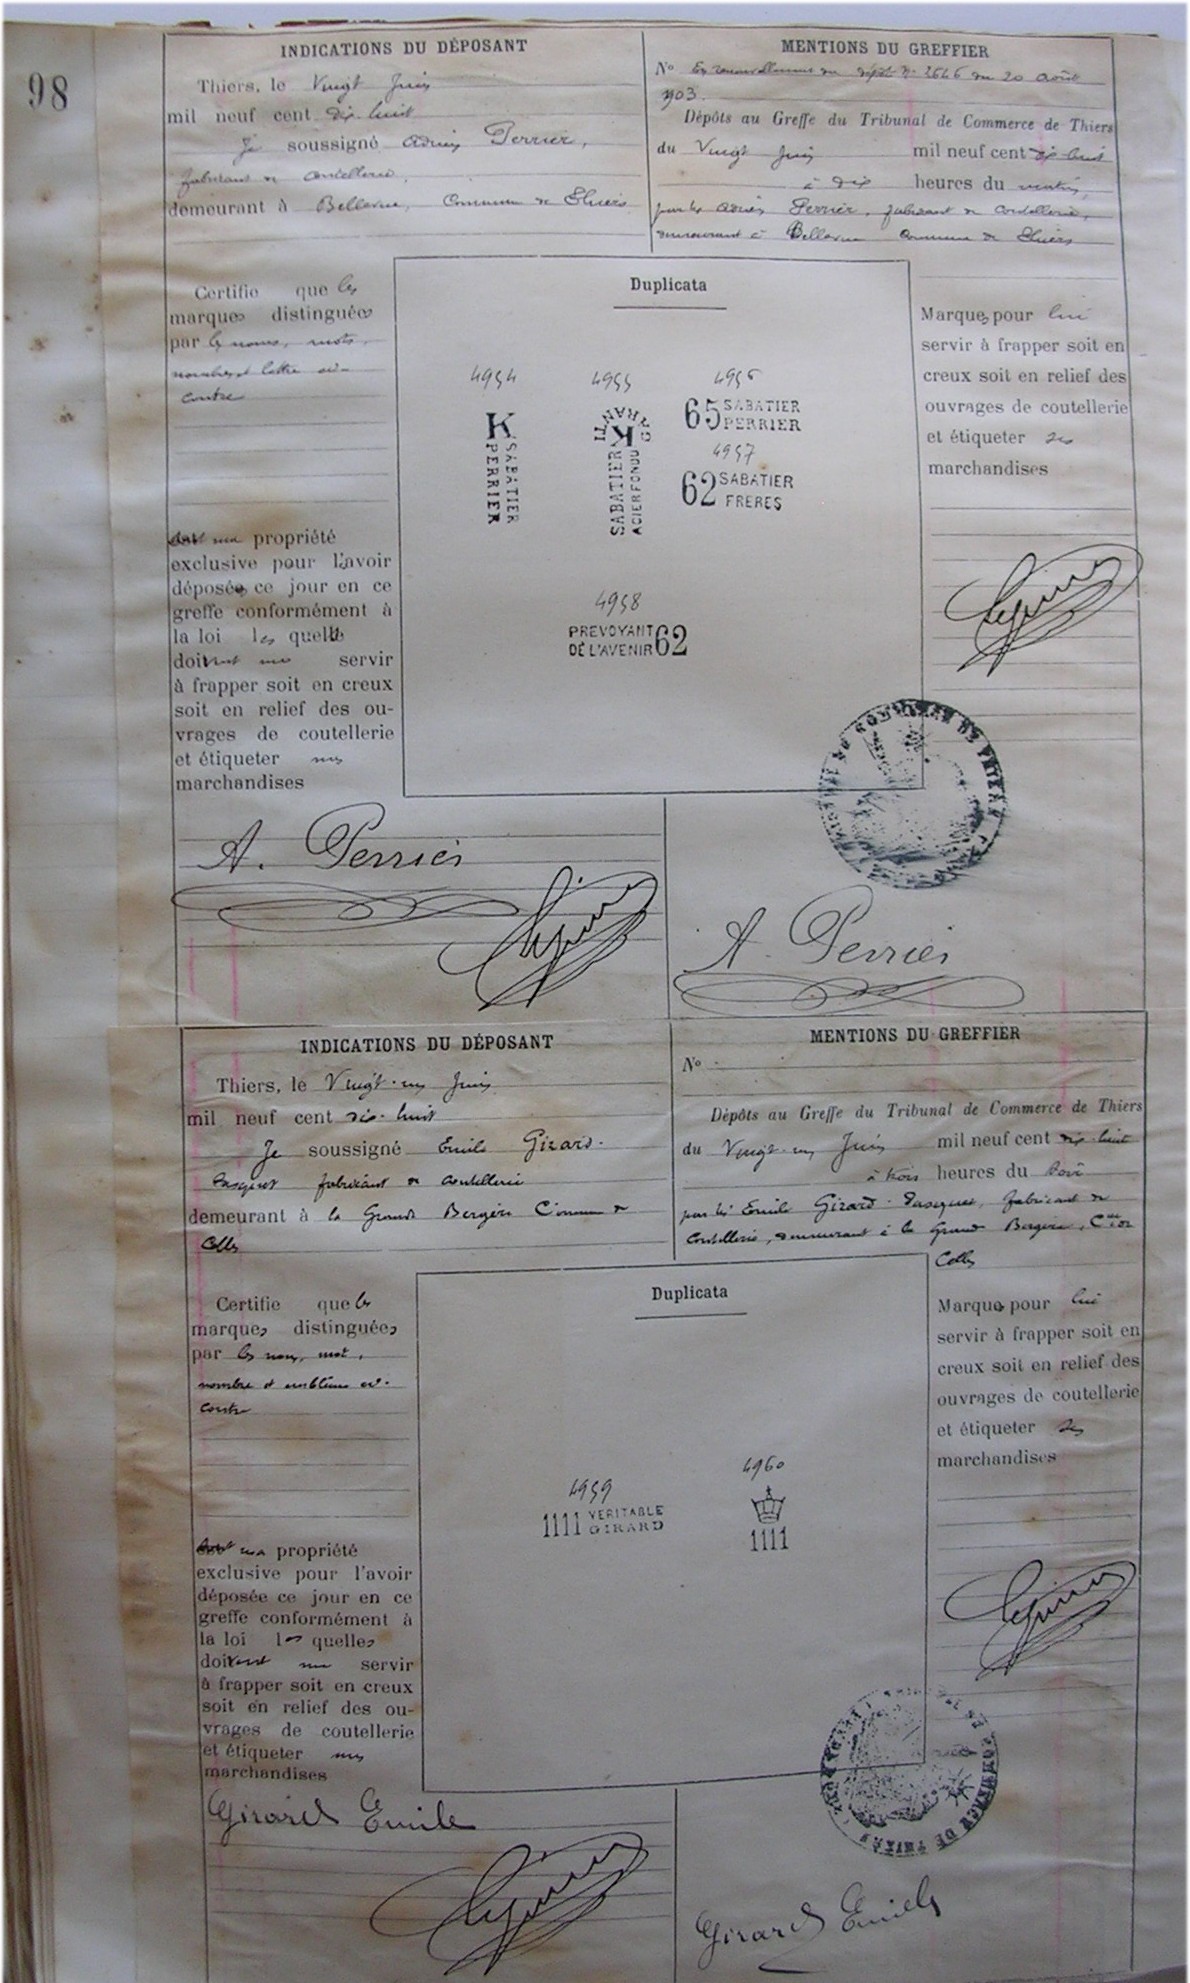 98
INDICATIONS DU DÉPOSANT
Thiers, le Vingt Juin
mil neuf cent dix-huit
Je soussigné Adrien Perrier,
fabricant de coutellerie,
demeurant à Bellevue, Commune de Thiers
MENTIONS DU GREFFIER
No En renouvellement du dépôt No 2646 du 20 Août
1903.
Dépôts au Greffe du Tribunal de Commerce de Thiers
du Vingt Juin mil neuf cent dix-huit
à dix heures du matin,
par le Adrien Perrier, fabricant de coutellerie,
demeurant à Bellevue Commune de Thiers
Certifie que les
marques distinguées
par les noms, mots,
nombres et lettre ci-
contre
sont ma propriété
exclusive pour l'avoir
déposée, ce jour en ce
greffe conformément à
la loi les quelles
doivent me servir
à frapper soit en creux
soit en relief des ou-
vrages de coutellerie
et étiqueter mes
marchandises
Duplicata
4954
K
SABATIER
PERRIER
4955
GARANTI
K
SABATIER
ACIER FONDU
4956
65 SABATIER
PERRIER
4957
62 SABATIER
FRERES
4958
PREVOYANT
DE L'AVENIR 62
Marques pour lui
servir à frapper soit en
creux soit en relief des
ouvrages de coutellerie
et étiqueter ses
marchandises
A. Perrier
A. Perrier
INDICATIONS DU DÉPOSANT
Thiers, le Vingt-un Juin
mil neuf cent dix-huit
Je soussigné Emile Girard-
Pasquet fabricant de coutellerie
demeurant à la Grande Bergère Commune de
Celles
MENTIONS DU GREFFIER
No
Dépôts au Greffe du Tribunal de Commerce de Thiers
du Vingt-un Juin mil neuf cent dix-huit
à trois heures du soir
par le Emile Girard-Pasquet, fabricant de
Coutellerie, demeurant à la Grande Bergère, Cne de
Celles
Certifie que les
marques distinguées
par les noms, mot,
nombre et emblème ci-
contre
sont ma propriété
exclusive pour l'avoir
déposée ce jour en ce
greffe conformément à
la loi les quelles
doivent me servir
à frapper soit en creux
soit en relief des ou-
vrages de coutellerie
et étiqueter mes
marchandises
Duplicata
4959
1111 VERITABLE
GIRARD
4960
1111
Marques pour lui
servir à frapper soit en
creux soit en relief des
ouvrages de coutellerie
et étiqueter ses
marchandises
Girard Emile
Girard Emile